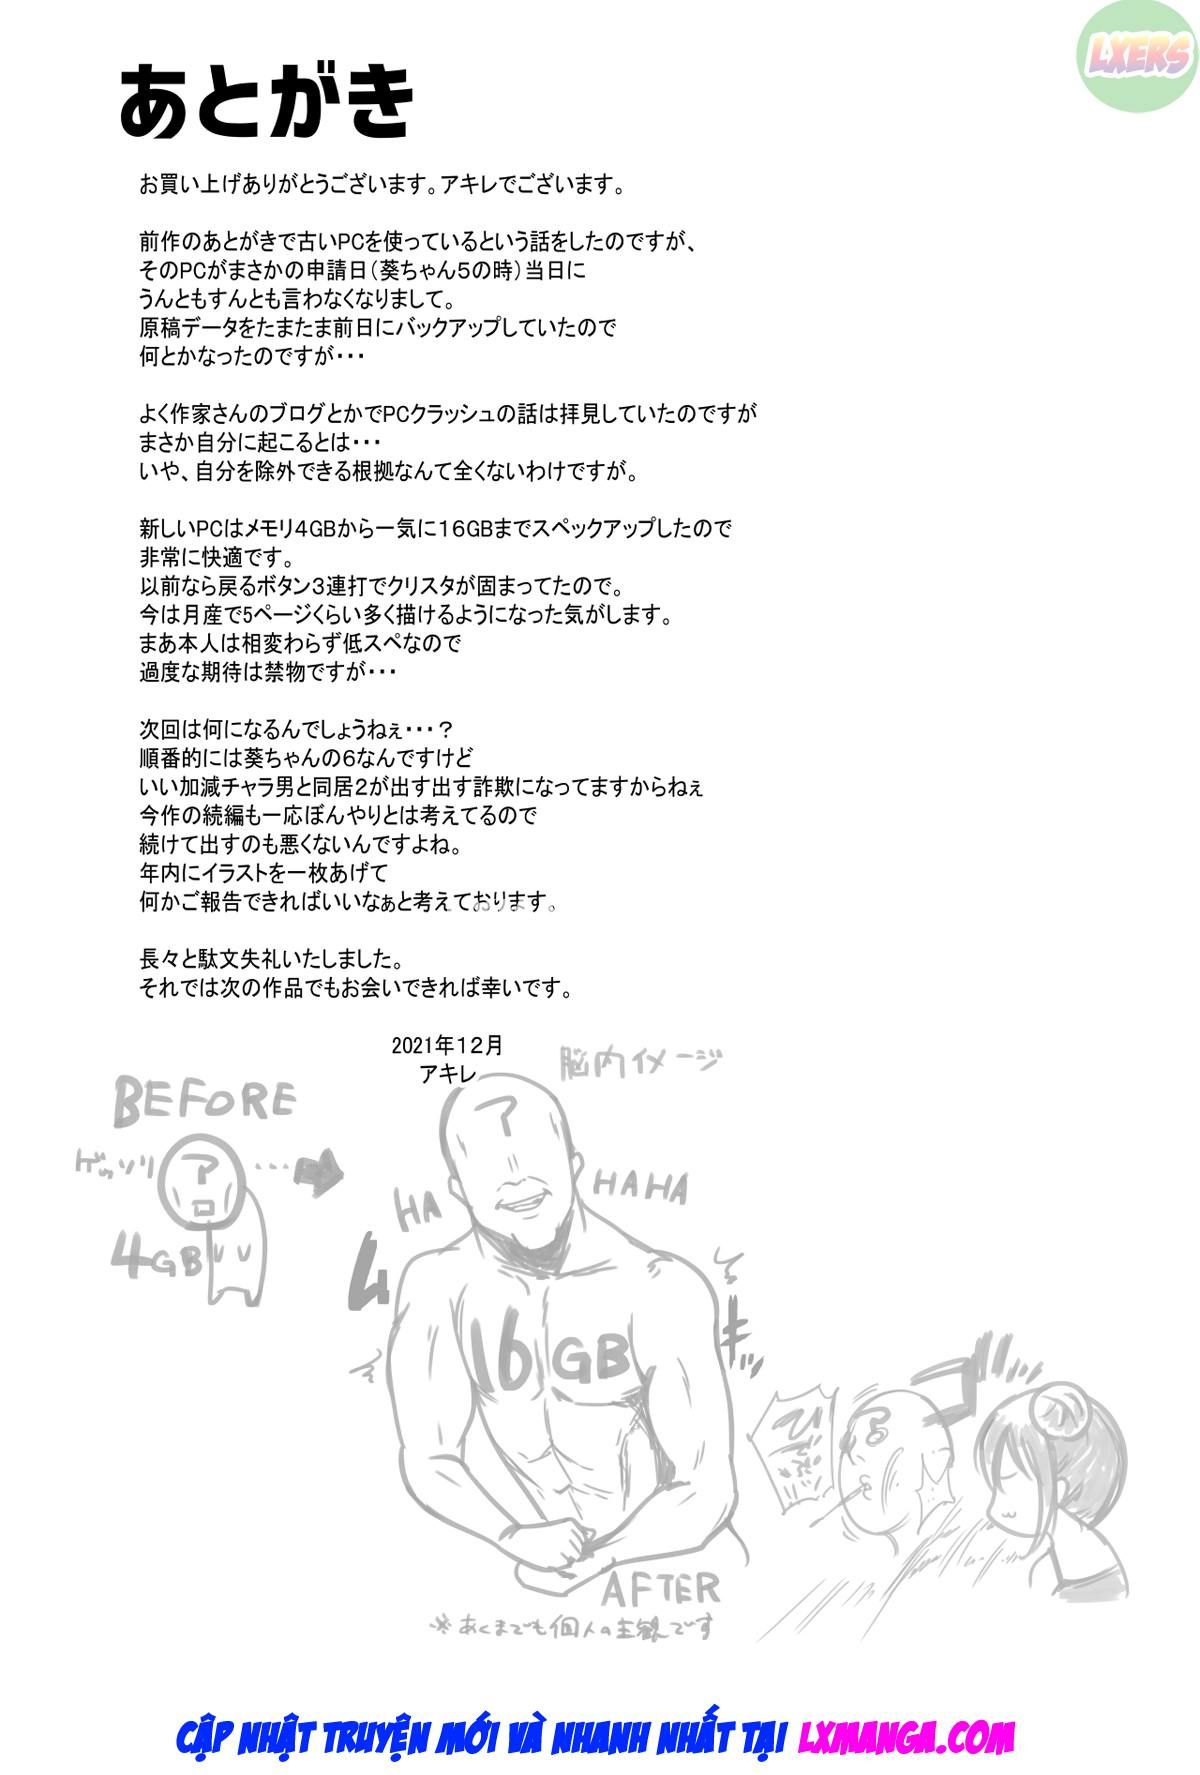 LXERS
あとがき
お買い上げありがとうございます。アキレでございます。
前作のあとがきで古いPCを使っているという話をしたのですが、
そのPCがまさかの申請日(葵ちゃん5の時)当日に
うんともすんとも言わなくなりまして。
原稿データをたまたま前日にバックアップしていたので
何とかなったのですが・・・
よく作家さんのブログとかでPCクラッシュの話は拝見していたのですが
まさか自分に起こるとは・・・
いや、自分を除外できる根拠なんて全くないわけですが。
新しいPCはメモリ4GBから一気に16GBまでスペックアップしたので
非常に快適です。
以前なら戻るボタン3連打でクリスタが固まってたので。
今は月産で5ページくらい多く描けるようになった気がします。
まあ本人は相変わらず低スペなので
過度な期待は禁物ですが・・・
次回は何になるんでしょうねぇ・・・?
順番的には葵ちゃんの6なんですけど
いい加減チャラ男と同居2が出す出す詐欺になってますからねぇ
今作の続編も一応ぼんやりとは考えてるので
続けて出すのも悪くないんですよね。
年内にイラストを一枚あげて
何かご報告できればいいなぁと考えております。
長々と駄文失礼いたしました。
それでは次の作品でもお会いできれば幸いです。
2021年12月
アキレ
脳内イメージ
BEFORE
ゲッソリ
ア
ロ
4GB
ア
HA
HAHA
ム
キッ
16GB
AFTER
※あくまでも個人の主観です
ア
CẬP NHẬT TRUYỆN MỚI VÀ NHANH NHẤT TẠI LXMANGA.COM